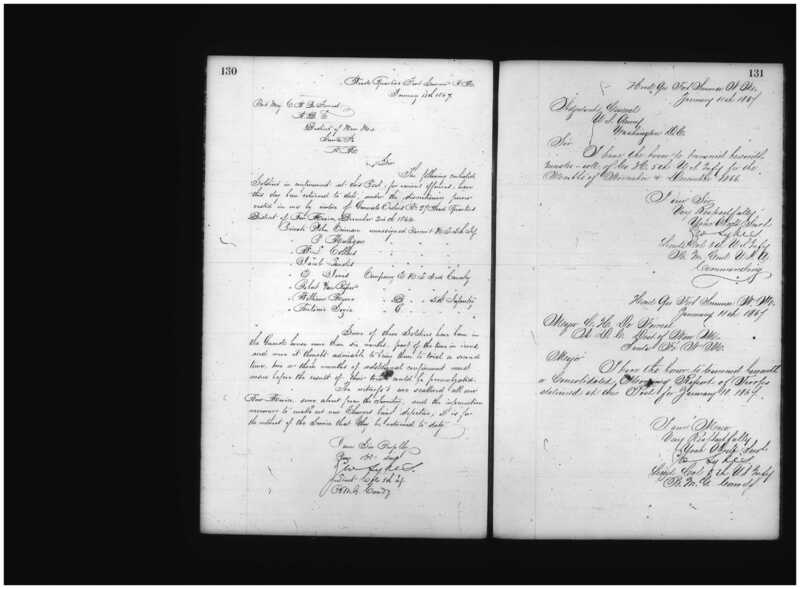 130
Head Quarters Fort Sumner N. M.
January 1867
Bvt Maj C. H. De Forrest
A. D. C.
District of New Mex
Santa Fe
N. M.
Sir
The following enlisted
Soldiers in confinement at this Post, for various offences, have
this day been returned to duty, under the discretionary power
vested in me by virtue of General Orders No 27 Head Quarters
District of New Mexico, December 2nd 1866
Private John unassigned Recruit U. S. 5th Inf
" P. Mulligan
" Collins
"
" D. Jones Company U. S. 3rd Cavalry
"
" William " B " 5th Infantry
" " G "
Some of these Soldiers have been in
the Guard house more than six months, part of the time in irons,
and were it thought advisable to bring them to trial a second
time, two or three months of additional confinement must
ensue before the result of their trial could be promulgated.
The witness's are scattered all over
New Mexico, some absent from the Territory, and the information
necessary to make out new Charges being defective, it is for
the interest of the Service that they be restored to duty
I am Sir Respctfly
Your Obt. Servt
Sykes.
Lieut Col 5th Inf
B.M.G. Comdg
131
Head Qrs Fort Sumner N. Mo.
January 11th 1867
Adjutant General
U. S. Army
Washington D.C.
Sir
I have the honor to transmit herewith
muster-rolls of Co H, 5th U.S. Infty for the
Months of November & December 1866.
I am Sir
Very Respectfully
Your Obdt Servt
Sykes
Lieut Col 5th U.S. Infty
Bt. M. Genl U.S.A.
Commanding
Head Qrs Fort Sumner N. Mo.
January 11th 1867
Major C. H. De Forrest
A. D. C. Dist of New Mo.
Santa Fe N. Mo.
Major
I have the honor to transmit herewith
a Consolidated Morning Report of Troops
stationed at this Post for January 11. 1867.
I am Major
Very Respectfully
Your Obdt Servt
Sykes
Lieut Col 5th U.S. Infty
B. M. G. Comdg